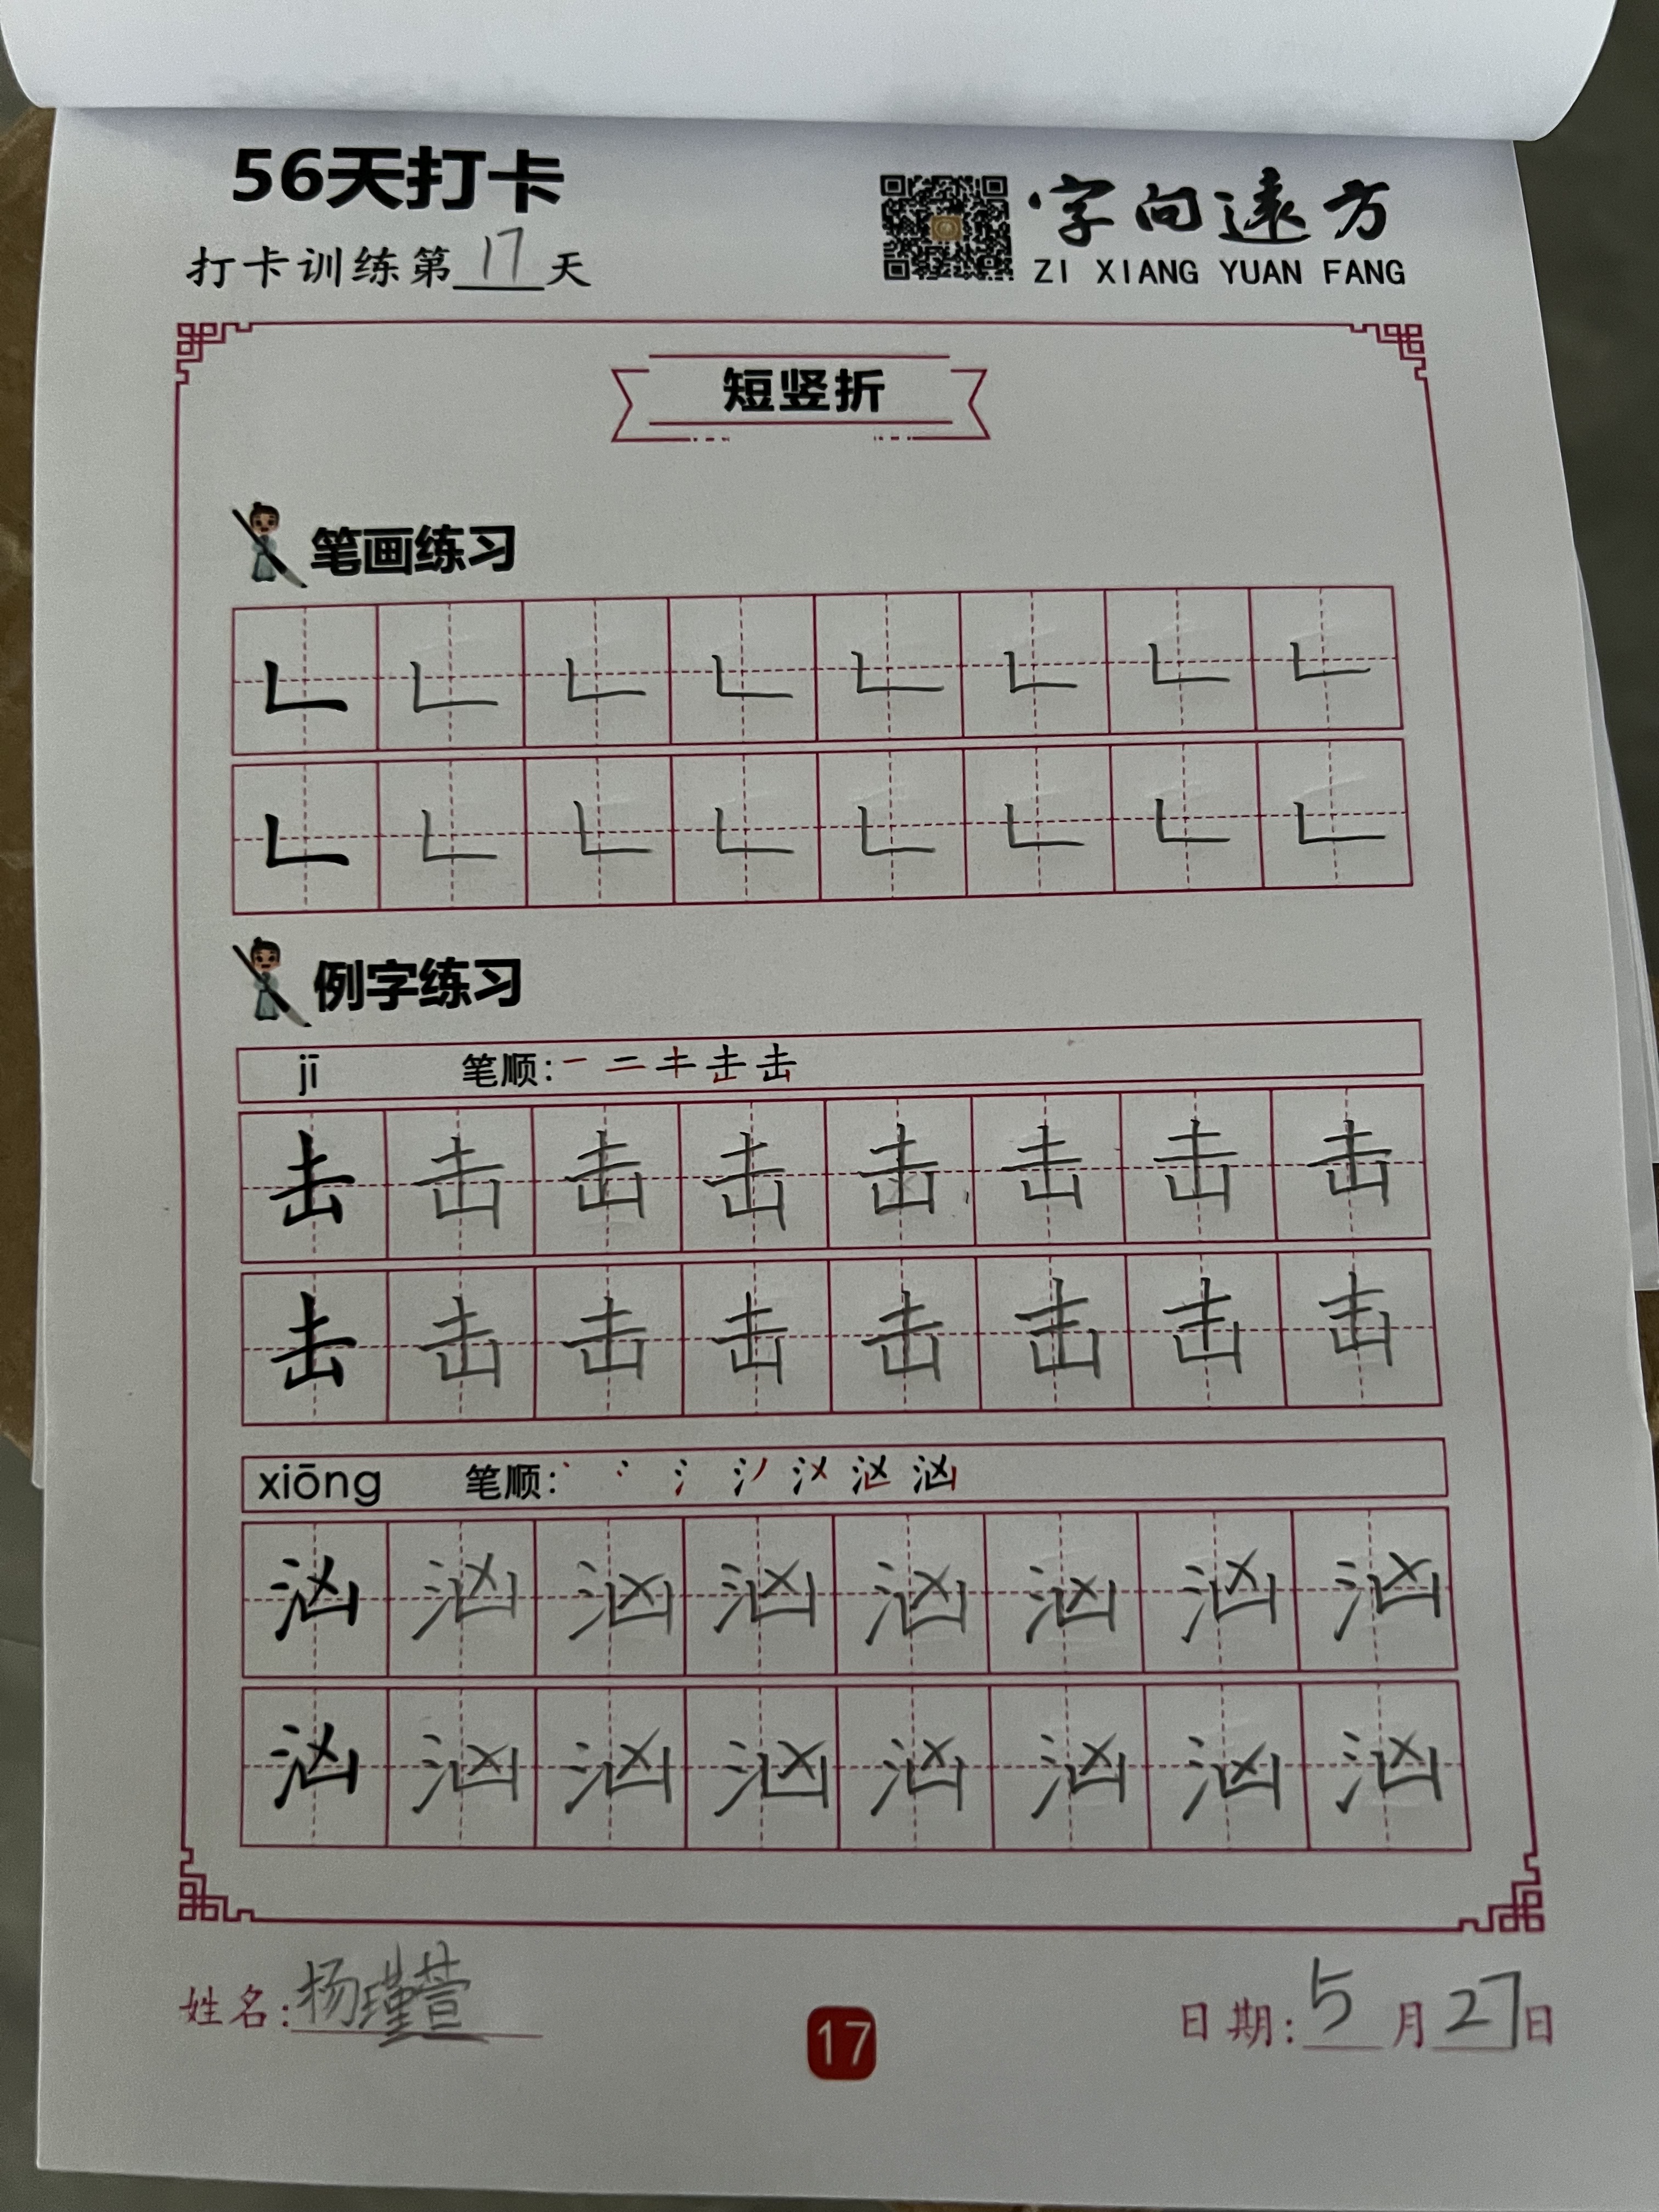 56天打卡
打卡训练第17天
字向远方
ZI XIANG YUAN FANG
短竖折
笔画练习
例字练习
jī 笔顺:一 二 キ 击 击
击 击 击 击 击 击 击 击
击 击 击 击 击 击 击 击
xiōng 笔顺:丶 冫 氵 汹
汹 汹 汹 汹 汹 汹 汹 汹
汹 汹 汹 汹 汹 汹 汹 汹
姓名:杨瑾萱
17
日期:5月27日